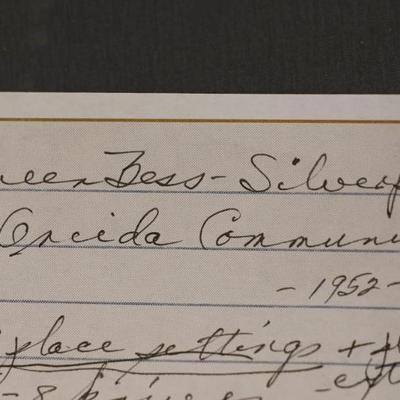 ueen Bess - Silverp
Oneida Communi
- 1952 -
place settings + pl
- 8